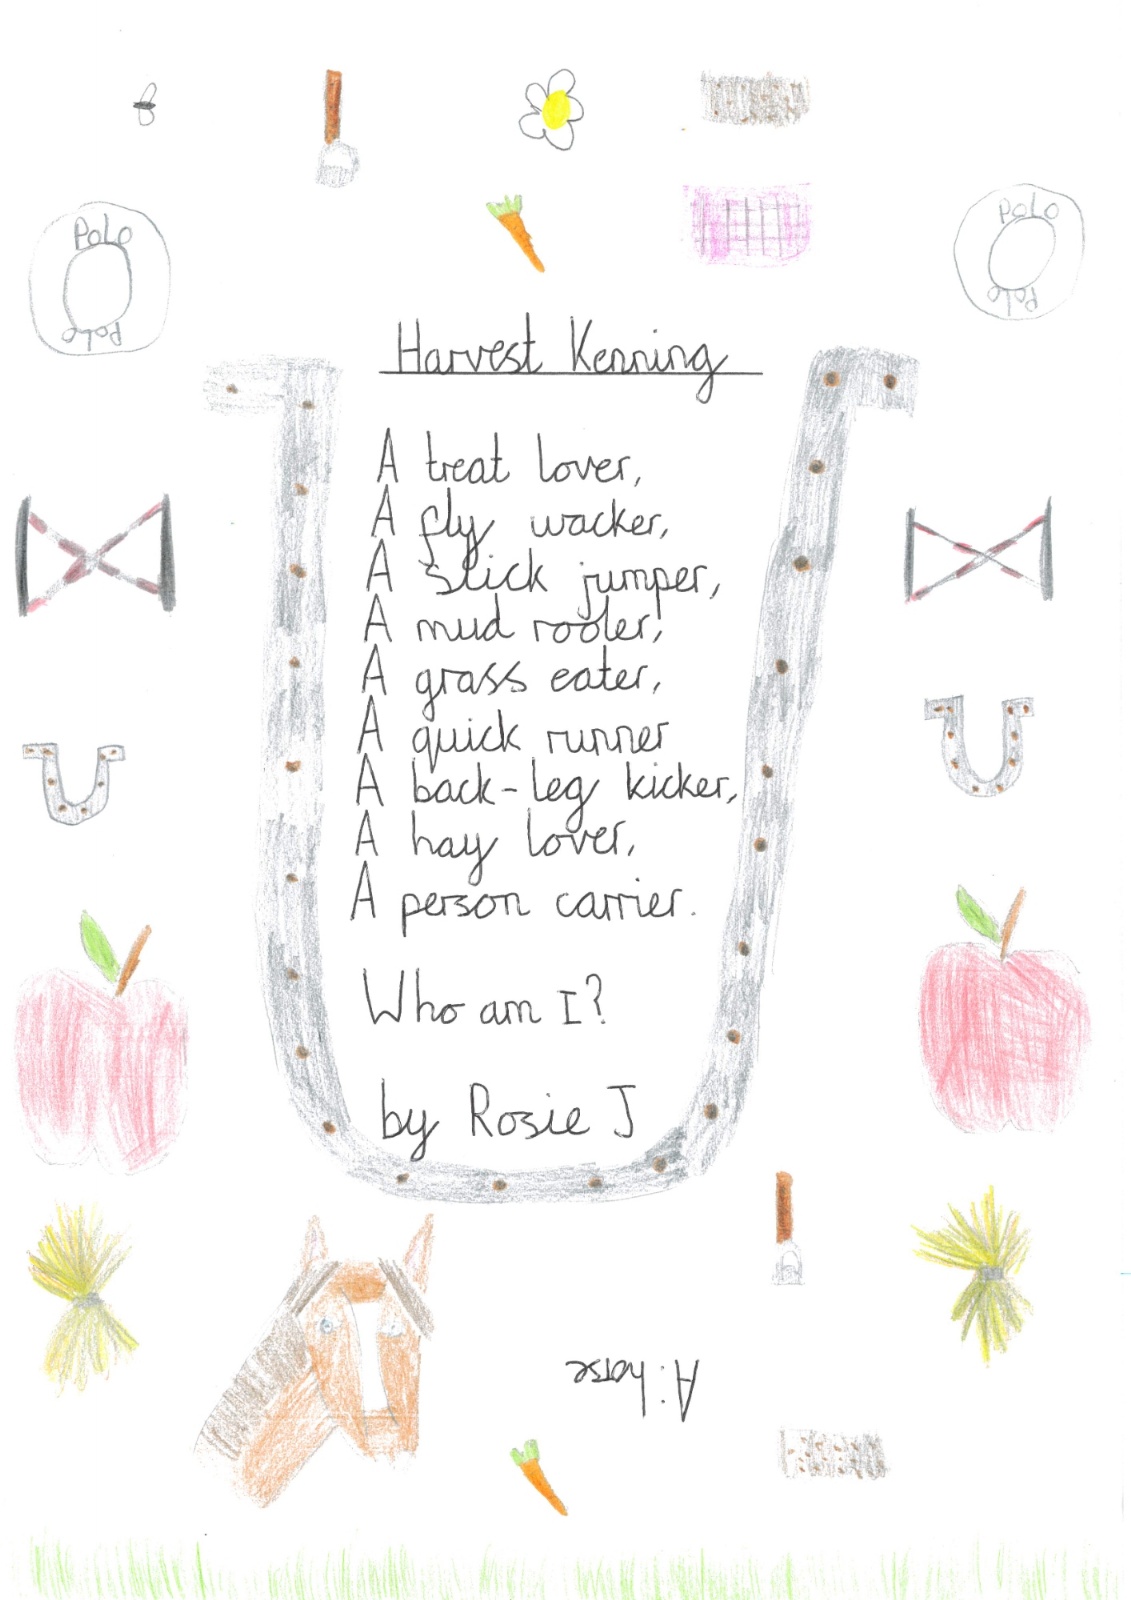 PoLo
PoLo
PoLo
PoLo
Harvest Kenning
A treat lover,
A fly wacker,
A stick jumper,
A mud rooler,
A grass eater,
A quick runner
A back-leg kicker,
A hay lover,
A person carrier.
Who am I?
by Rosie J
A: horse